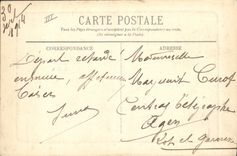 30
1914
III
CARTE POSTALE
Tous les Pays étrangers n'acceptent pas la Correspondance au recto.
(Se renseigner à la Poste)
CORRESPONDANCE
ADRESSE
Départ retardé
ennuiée, affectueux
Baisers
Mademoiselle
Marguerite
Central télégraphe
Agen
Lot et Garonne